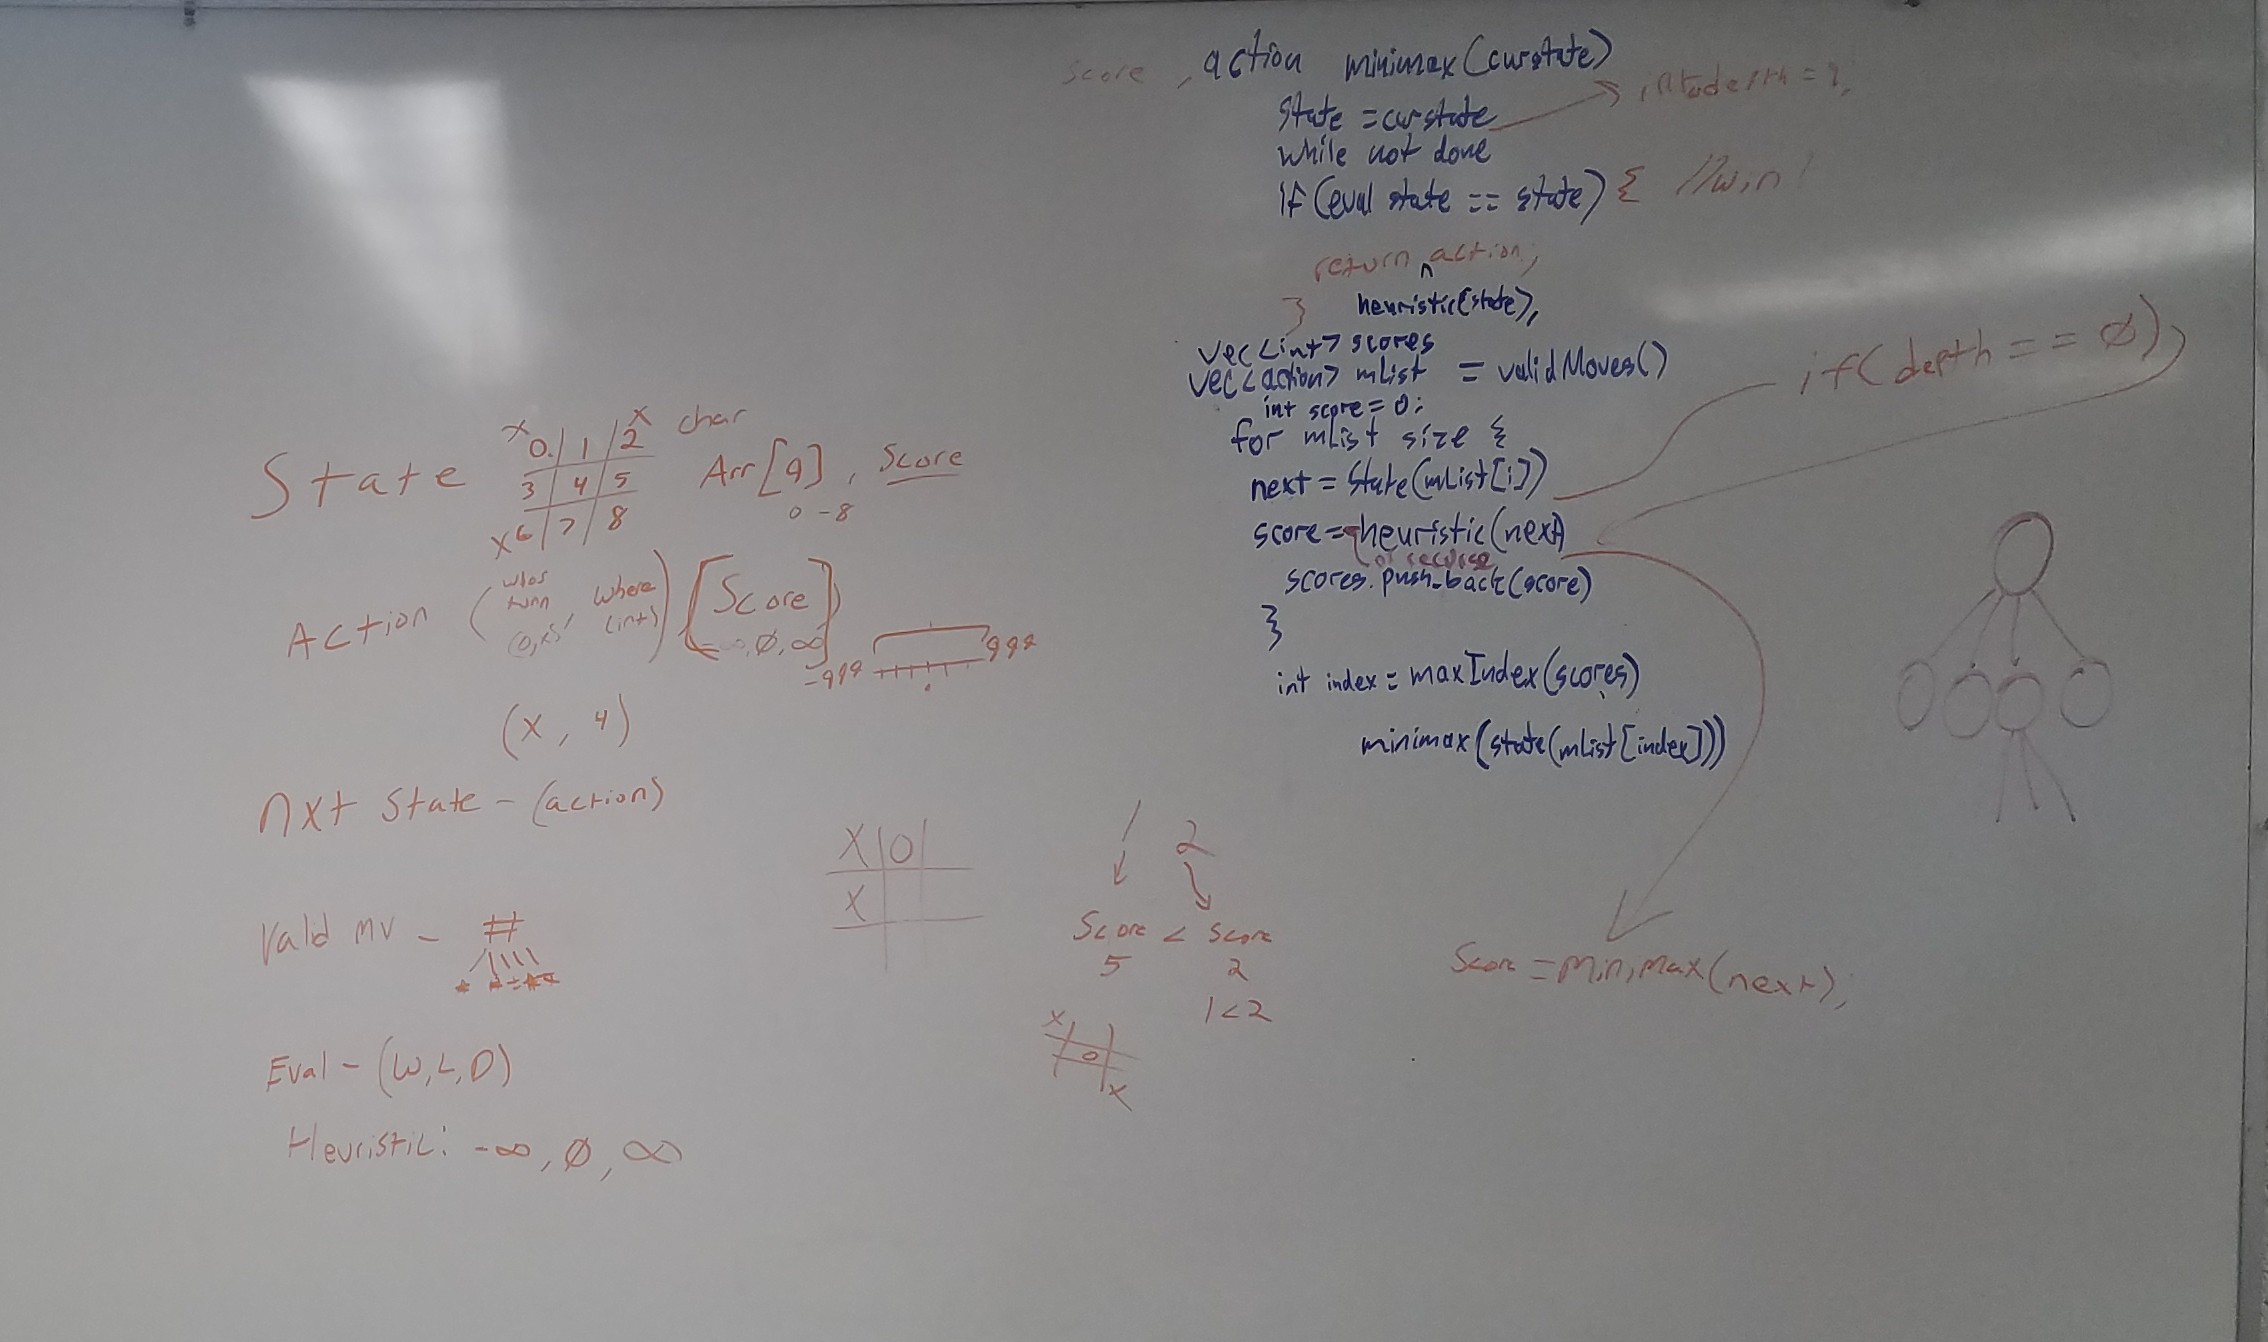 State
x x char
0 | 1 | 2
3 | 4 | 5
x 6 | 7 | 8
Arr[9], Score
0-8
Action (whos turn, where (int)) [Score]
-∞, Ø, ∞
-999 999
(x, 4)
nxt State - (action)
Valid mv - #
Eval - (W,L,D)
Heuristic: -∞, Ø, ∞
X | O |
X
1 2
Score < Score
5 2
1<2
x
o
x
Score, action minimax(curstate)
state = curstate
while not done
if (eval state == state) { //win!
return action;
^
} heuristic(state),
vec<int> scores
vec<action> mList = validMoves()
int score = 0;
for mList size {
next = State(mList[i])
if(depth == Ø),
score = heuristic(next)
or recurse
scores.push_back(score)
}
int index = maxIndex(scores)
minimax(state(mList[index]))
Score = minimax(next);